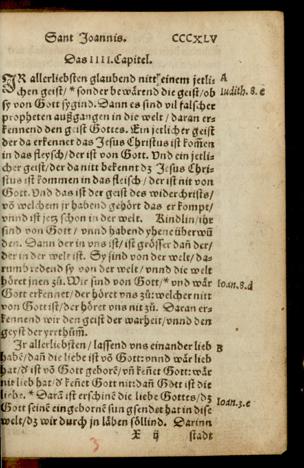 Sant Joannis. CCCXLV
Das IIII. Capitel.
IR allerliebsten glaubend nitt einem jetli- A
chen geist/ * sonder bewärtend die geist/ ob Iudith. 8. e
sy von Gott sygind. Dann es sind vil falscher
propheten außgangen in die welt / daran er-
kennend den geist Gottes. Ein jetlicher geist
der da erkennet das Jesus Christus ist kommē
in das fleysch/ der ist von Gott. Vnd ein jetli-
cher geist/ der da nitt bekennt dz Jesus Chri-
stus ist kommen in das fleisch / der ist nit von
Gott. Vnd das ist der geist des widerchrists/
vō welchem jr habend gehört das er kompt/
vnnd ist jetz schon in der welt. Kindlin/ ihr
sind von Gott / vnnd habend yhene überwū
den. Dann der in vns ist/ ist grösser dañ der/
der in der welt ist. Sy sind von der welt/ da-
rumb redend sy von der welt / vnnd die welt
höret jnen zů. Wir sind von Gott/ * vnd wär Ioan. 8. d
Gott erkennet/ der höret vns zů: welcher nitt
von Gott ist/ der höret vns nit zů. Daran er-
kennend wir den geist der warheit/ vnnd den
geyst der yrrthům̄.
Ir allerliebsten / lassend vns einander lieb B
habē/ dañ die liebe ist vō Gott: vnnd wär lieb
hat/ d' ist vō Gott geborē/ vñ kēnet Gott: wär
nit lieb hat/ d' kēnet Gott nit: dañ Gott ist die
liebe. * Darā ist erschinē die liebe Gottes/ dz Ioan. 3. e
Gott seinē eingebornē sun gsendet hat in dise
welt/ dz wir durch jn läben söllind. Darinn
X ij stadt
3